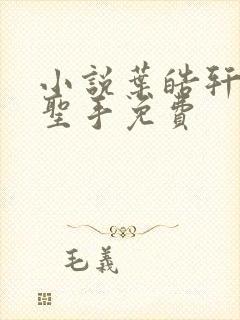 小説葉皓軒
聖手免費
毛義